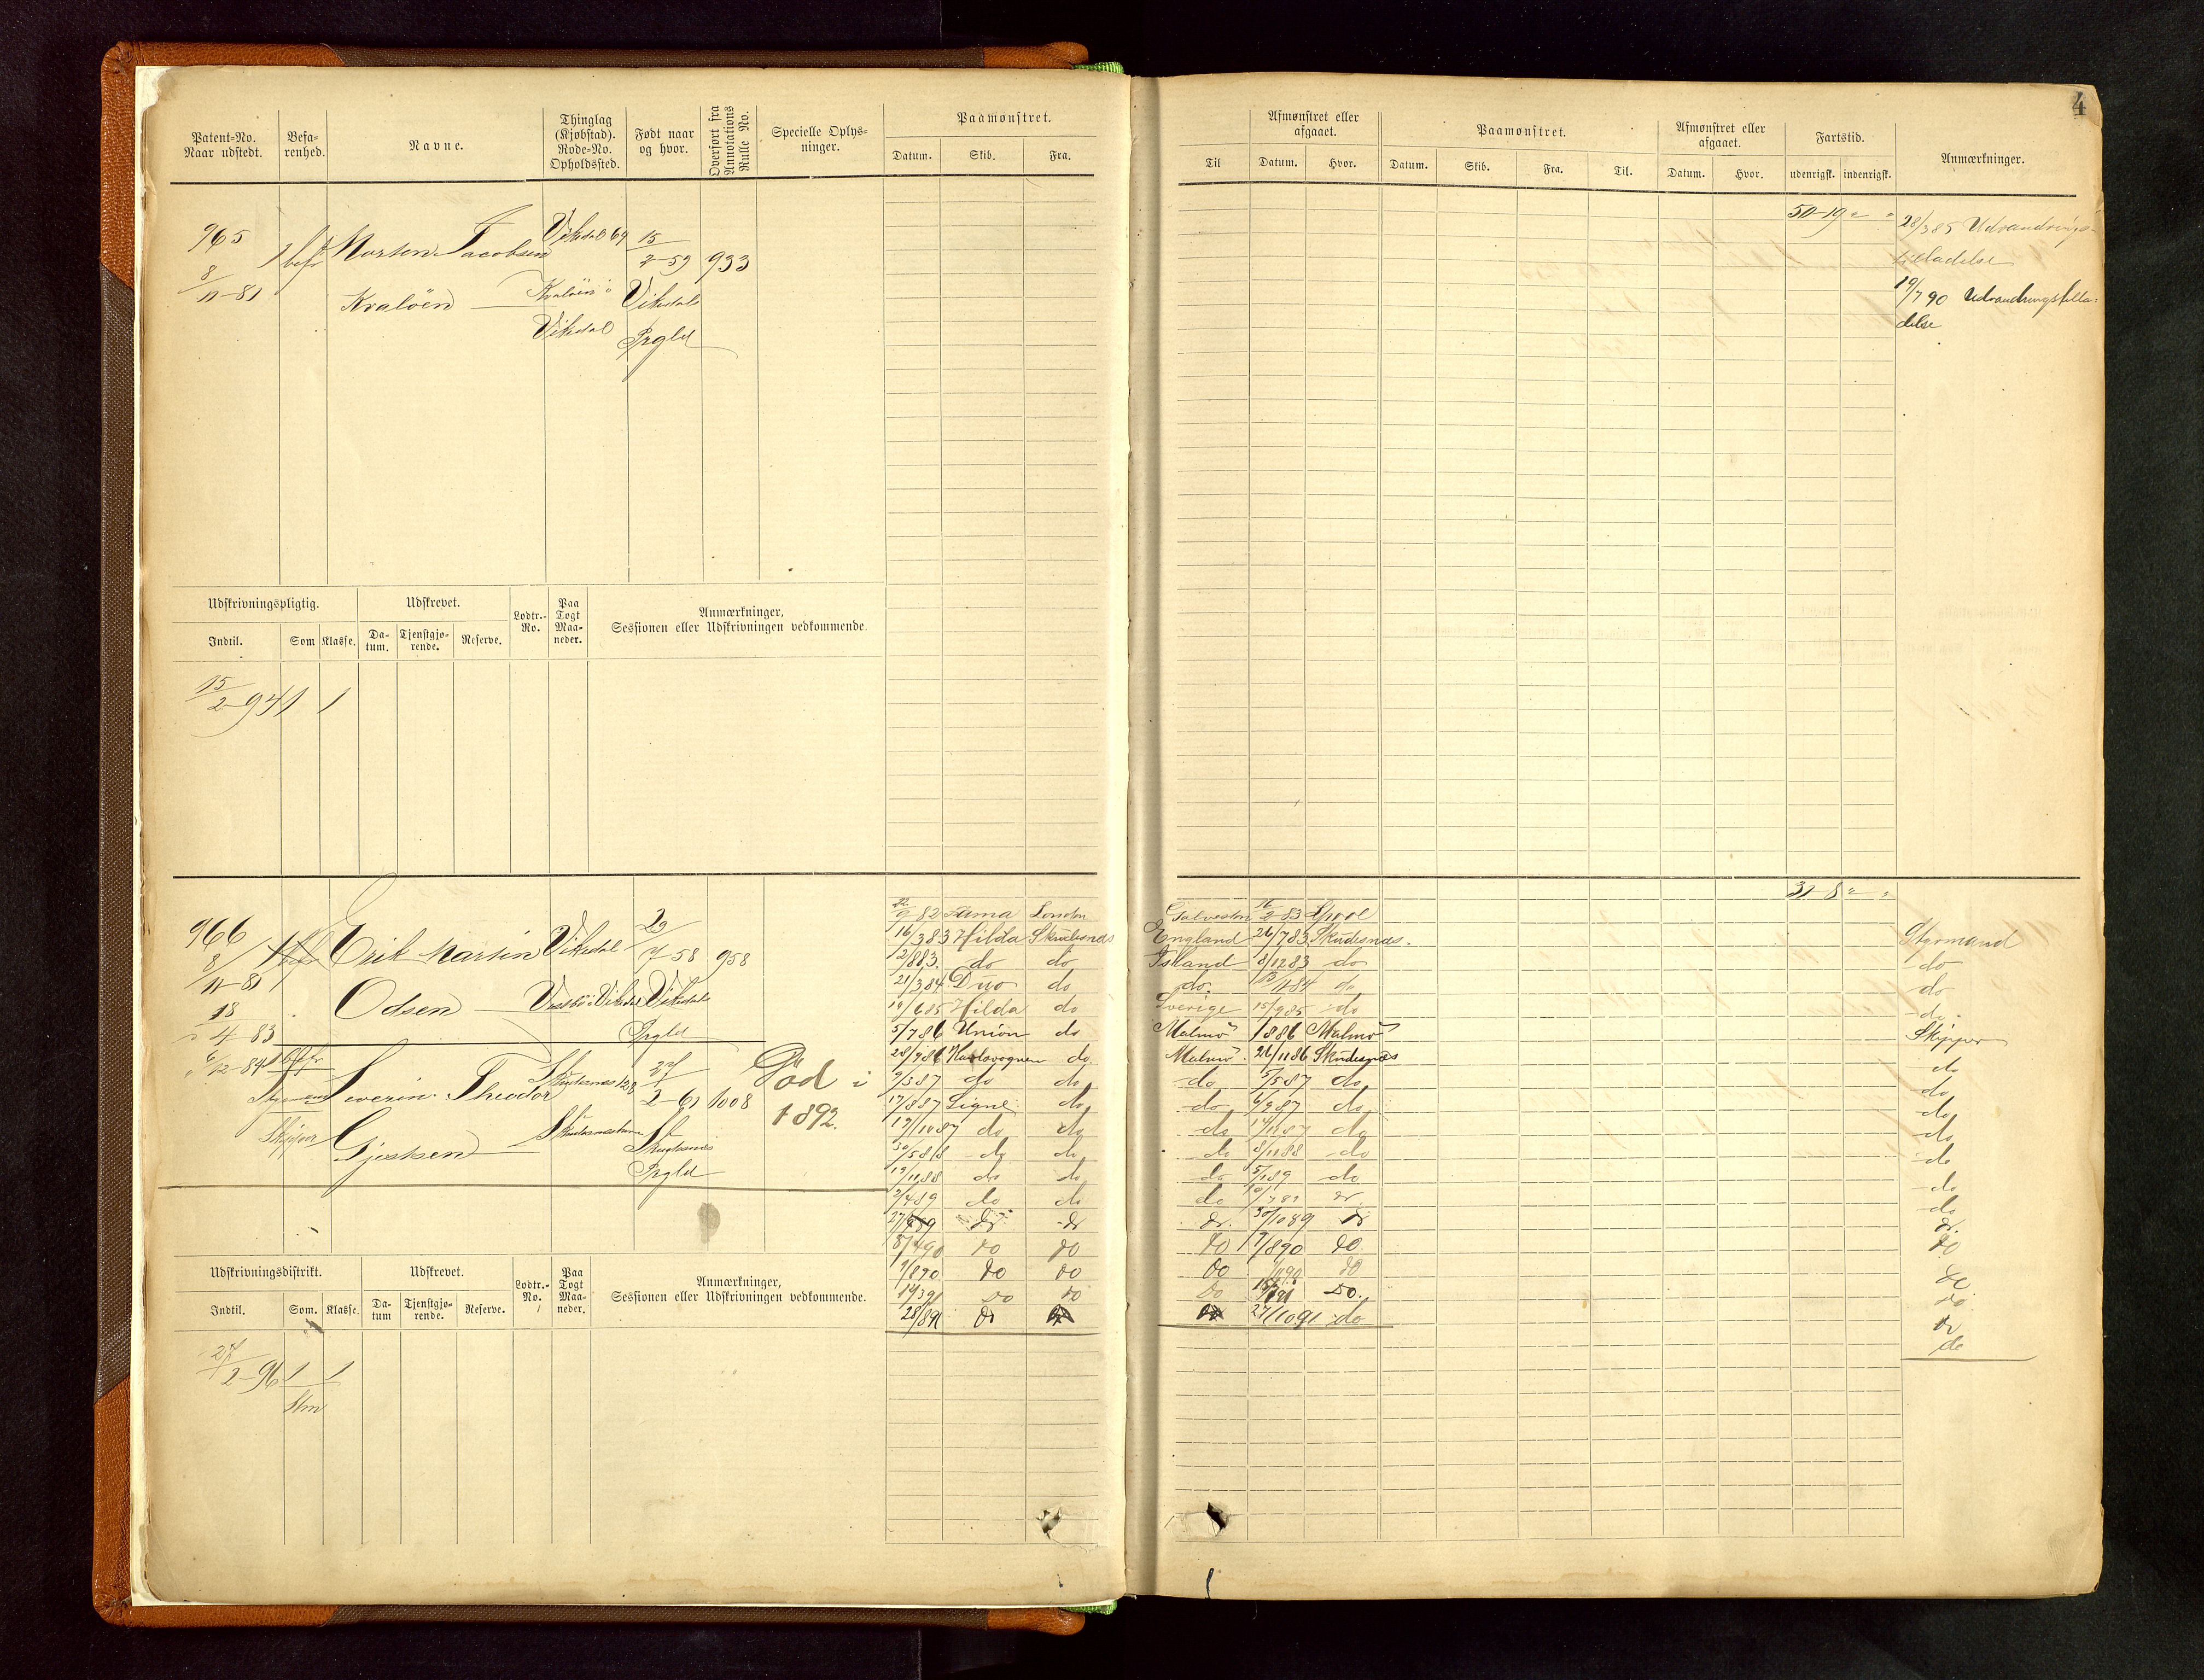 4
Patent-No. Naar udstedt.
Befarenhed.
Navne.
Thinglag (Kjøbstad). Rode-No. Opholdssted.
Født naar og hvor.
Overført fra Annotations Rulle No.
Specielle Oplysninger.
Paamønstret.
Datum. Skib. Fra.
Til
Afmønstret eller afgaaet.
Datum. Hvor.
Paamønstret.
Datum. Skib. Fra. Til.
Afmønstret eller afgaaet.
Datum. Hvor.
Fartstid.
udenrigsk. indenrigsk.
Anmærkninger.
965 Morten Jacobsen Vikedal 69 15/2-59 933
8/11-81 Kraløen Kraløen i Vikedal
Vikedal Prgld
50-19
28/3 85 Udvandringstilladelse
19/7 90 Udvandringstilladelse
Udskrivningspligtig. Udskrevet. Lodtr.-No. Paa Togt Maaneder. Anmærkninger, Sessionen eller Udskrivningen vedkommende.
Indtil. Som Klasse. Datum. Tjenstgjørende. Reserve.
15/2-94 1 1
966 Erik Martin Vikedal 58 958
8/11-81 Odsen Vikedal
Prgld
18/4-83
6/12-84
Severin Theodor Skudesnes 128 27/2-61 1008
Styrmand
Skipper Gjesken Skudesneshavn Skudesnes
Prgld
Død i 1892.
31-8
9 82 Fama London Galveston 83
16/3 83 Hilda Skudesnæs England 26/7 83 Skudesnæs. Styrmand
12/8 83 do do Island 8/12 83 do do
21/3 84 Duo do do 84 do do
6 85 Hilda do Sverige 15/9 85 do do
5/7 86 Union do Malmø 1 8 86 Malmø Skipper
28/9 86 Karlsvognen do Malmø 26/11 86 Skudesnæs do
9/3 87 do do do 5/5 87 do do
17/8 87 Signe do do 6/9 87 do do
19/10 87 do do do 14/11 87 do do
30/5 88 do do do 8/11 88 do do
19/11 88 do do do 5/1 89 do do
2/4 89 do do do do do
27/ 89 do do do 30/10 89 do do
8/4 90 do do do 7/8 90 do do
9/8 90 do do do 90 do do
14/3 91 do do do 91 do. do
28/8 91 do 27/10 91 do do
Udskrivningsdistrikt. Udskrevet. Lodtr.-No. Paa Togt Maaneder. Anmærkninger, Sessionen eller Udskrivningen vedkommende.
Indtil. Som. Klasse. Datum Tjenstgjørende. Reserve.
27/2-96 1 1
Stm